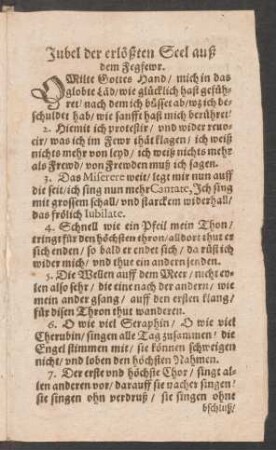 Jubel der erlößten Seel auß
dem Fegfewr.
O Milte Gottes Hand / mich in das
globte Läd / wie glücklich hast gefüh-
ret / nach dem ich büsset ab / wz ich be-
schuldet hab / wie sanfft hast mich berühret /
2. Hiemit ich protestir / vnd wider reuo-
cir / was ich im Fewr thät klagen / ich weiß
nichts mehr von leyd / ich weiß nichts mehr
als Frewd / von Frewden muß ich sagen.
3. Das Miserere weit / legt mir nun auff
die seit / ich sing nun mehr Cantate, Ich sing
mit grossem schall / vnd starckem widerhall /
das frölich Iubilate.
4. Schnell wie ein Pfeil mein Thon /
tringt für den höchsten thron / alldort thut er
sich enden / so bald er endet sich / da rüst ich
wider mich / vnd thue ein andern senden.
5. Die Wellen auff dem Meer / nicht ey-
len also sehr / die eine nach der andern / wie
mein ander gsang / auff den ersten klang /
für disen Thron thut wanderen.
6. O wie viel Seraphin / O wie viel
Cherubin / singen alle Tag zusammen / die
Engel stimmen mit / sie können schweigen
nicht / vnd loben den höchsten Nahmen.
7. Der erste vnd höchste Chor / singt al-
len anderen vor / darauff sie nacher singen /
sie singen ohn verdruß / sie singen ohne
bschluß /